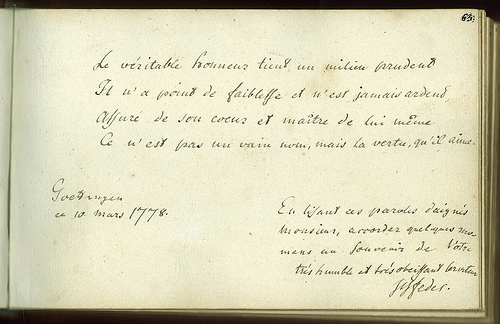 63.
Le véritable honneur tient un milieu prudent
Il n'a point de faiblesse et n'est jamais ardent,
Assuré de son coeur et maître de lui même
Ce n'est pas un vain nom, mais la vertu, qu'il aime.
Goettingen
ce 10 mars 1778.
En lisant ces paroles daignés
Monsieur, accorder quelques mo-
mens au Souvenir de Votre
très humble et très obeissant serviteur
Feder.